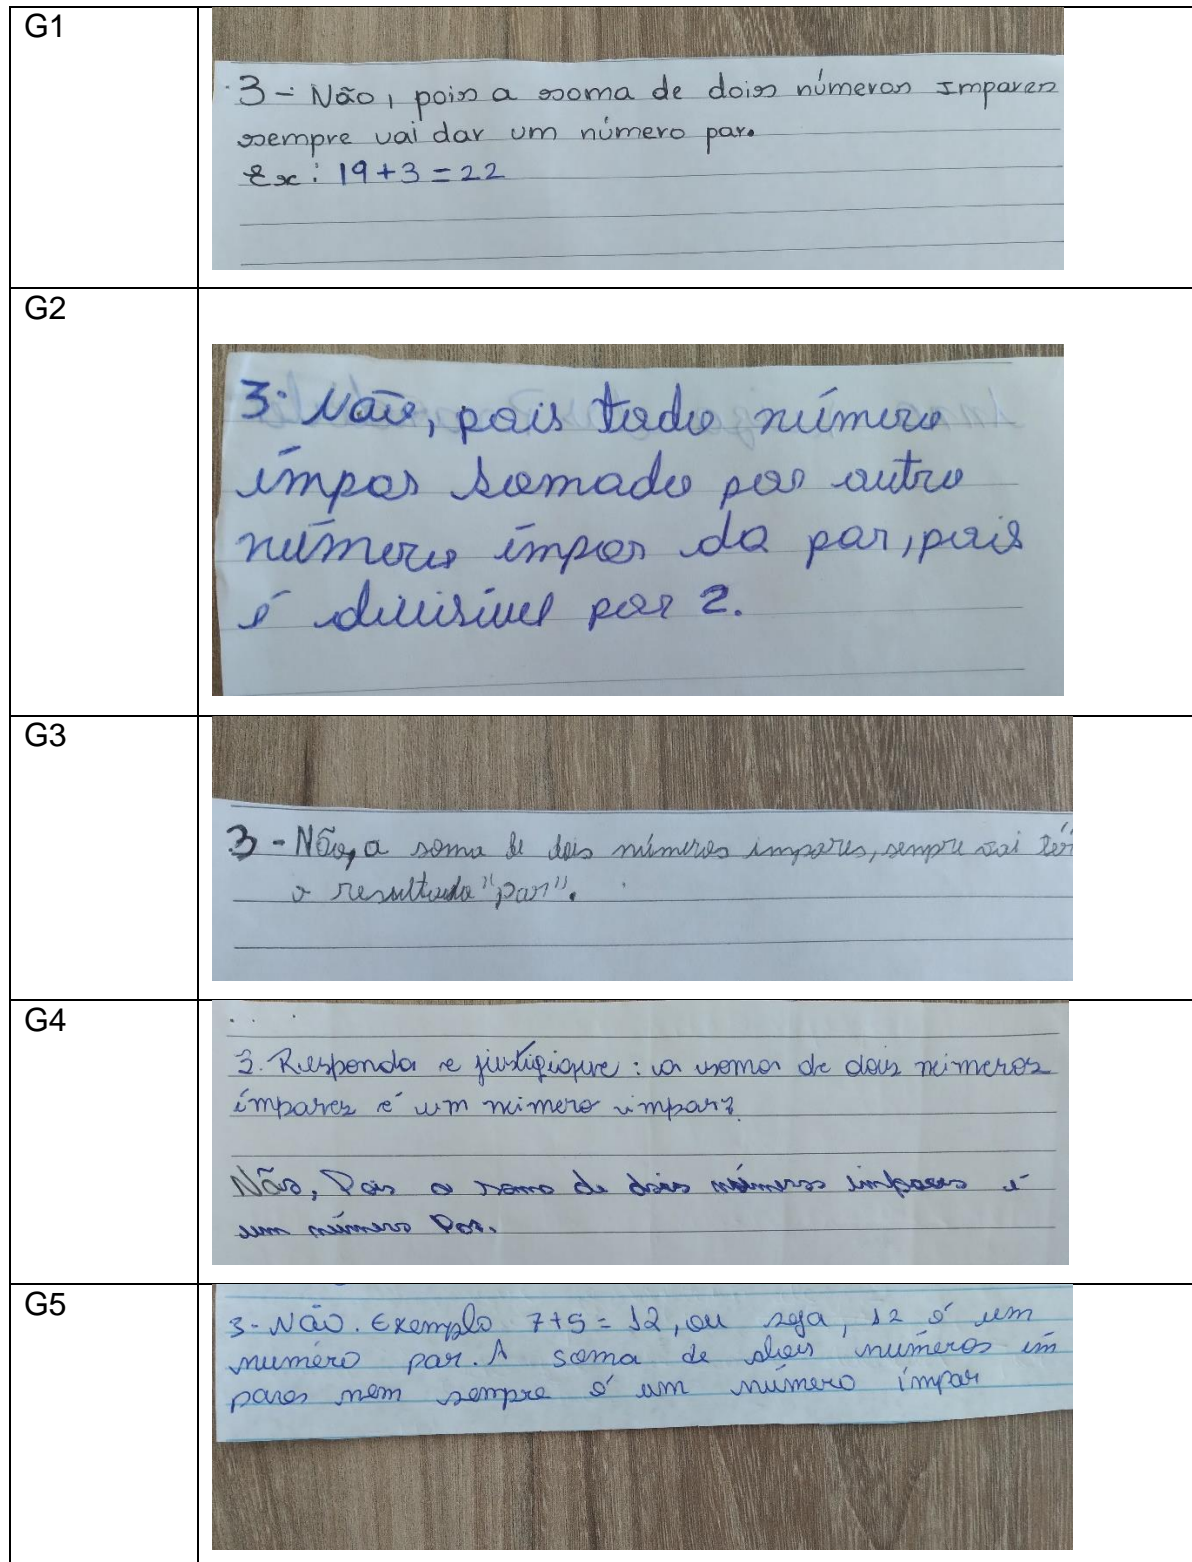 G1
3 - Não, pois a soma de dois números Impares
sempre vai dar um número par.
Ex: 19+3=22
G2
3- Não, pois todo número
ímpar somado por outro
número ímpar da par, pois
é divisível por 2.
G3
3 - Não, a soma de dois números impares, sempre vai têr
o resultado "par".
G4
3. Responda e justifique: a soma de dois números
ímpares é um número impar?
Não, Pois a soma de dois números impares é
um número Par.
G5
3- Não. Exemplo 7+5=12, ou seja, 12 é um
numéro par. A soma de dois números ím
pares nem sempre é um número ímpar